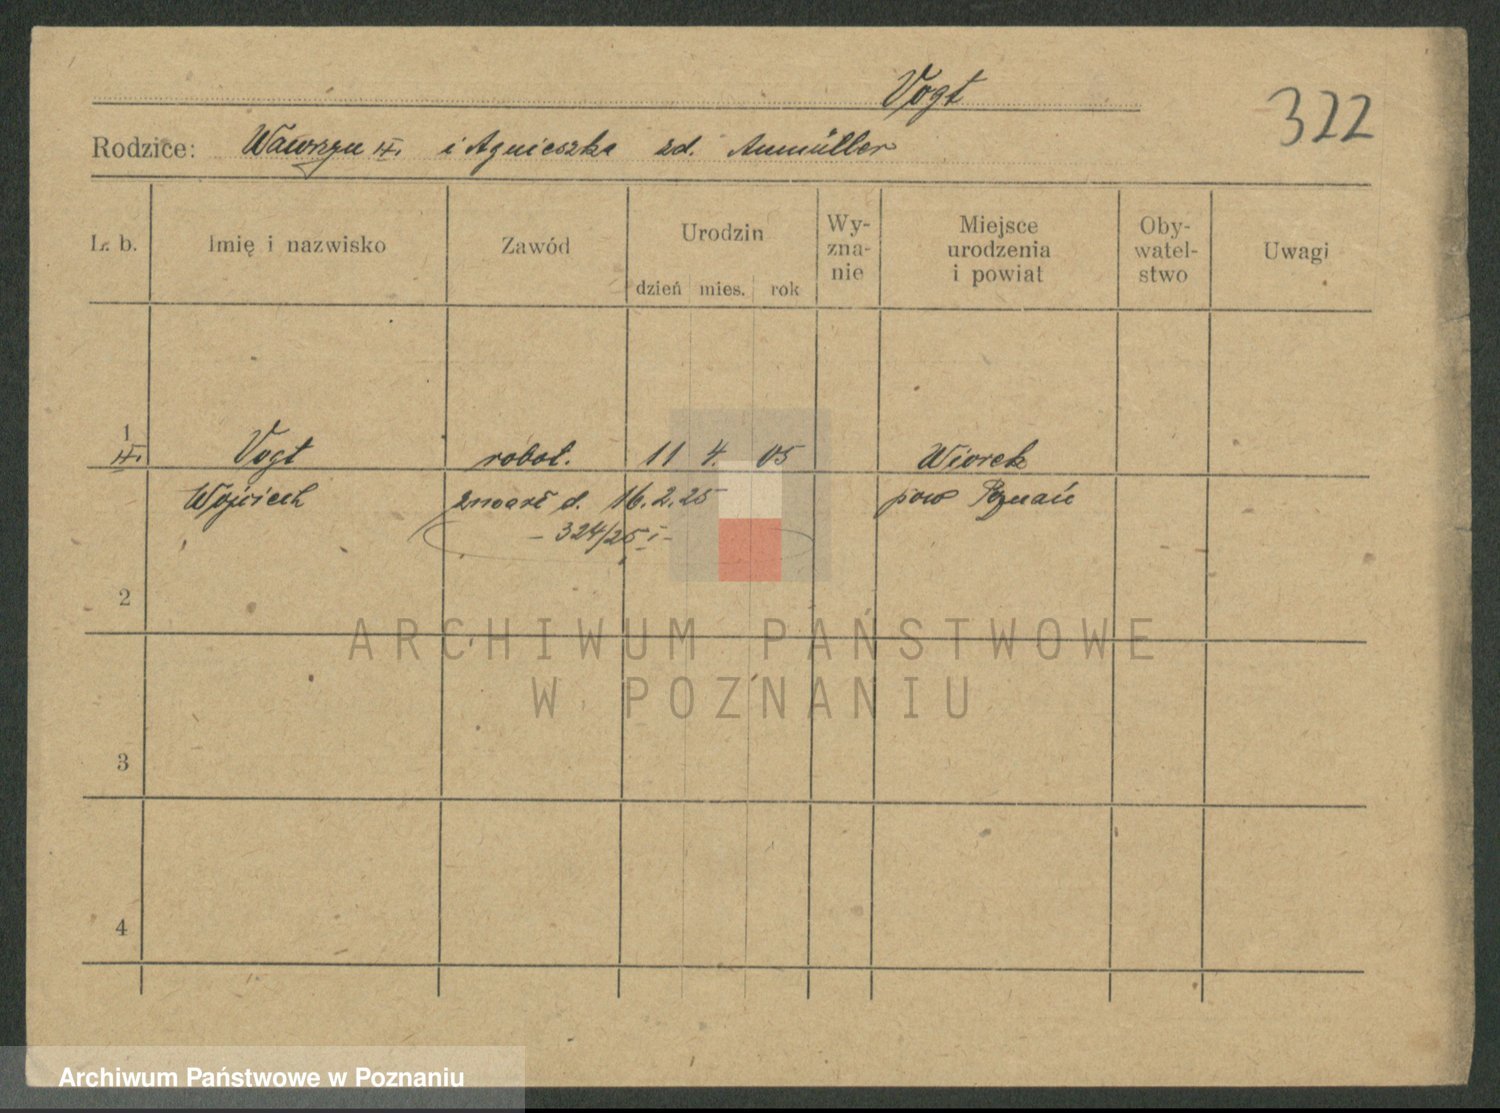 Vogt
322
Rodzice: Wawrzyn i Agnieszka zd. Aumüller
L. b. Imię i nazwisko Zawód Urodzin dzień mies. rok Wy-zna-nie Miejsce urodzenia i powiat Oby-watel-stwo Uwagi
1
Vogt robot. 11 4. 05 Wiorek
Wojciech zmarł d. 16.2.25 pow Poznań
- 324/25 I -
2
ARCHIWUM PAŃSTWOWE
W POZNANIU
3
4
Archiwum Państwowe w Poznaniu